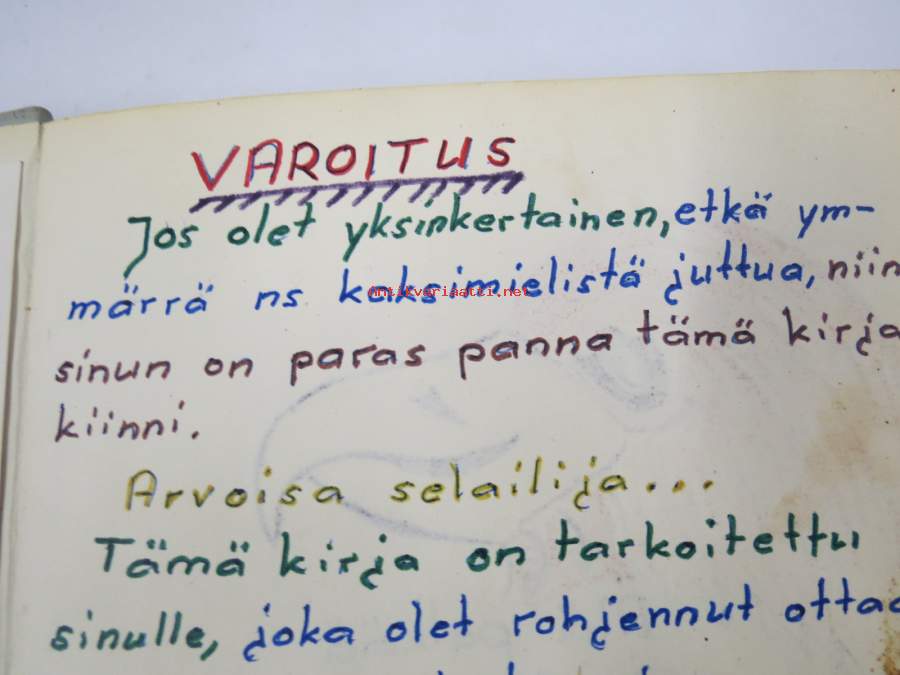 VAROITUS
Jos olet yksinkertainen, etkä ym-
märrä ns kaksimielistä juttua, niin
Antikvariaatti.net
sinun on paras panna tämä kirja
kiinni.
Arvoisa selailija...
Tämä kirja on tarkoitettu
sinulle, joka olet rohjennut ottaa